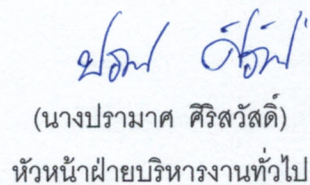 (นางปรามาศ ศิริสวัสดิ์)
หัวหน้าฝ่ายบริหารงานทั่วไป